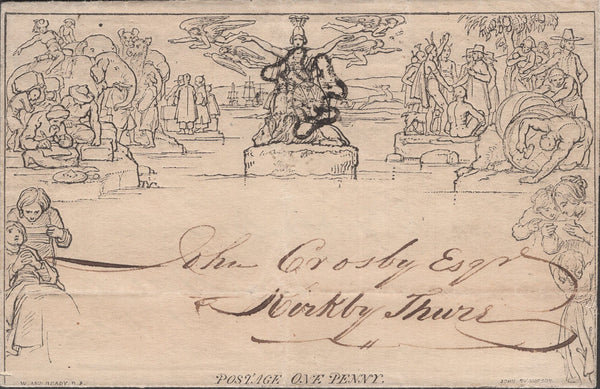 John Crosby Esqr
Kirkby Thure
POSTAGE ONE PENNY.
W. MULREADY. R.A.
JOHN THOMPSON